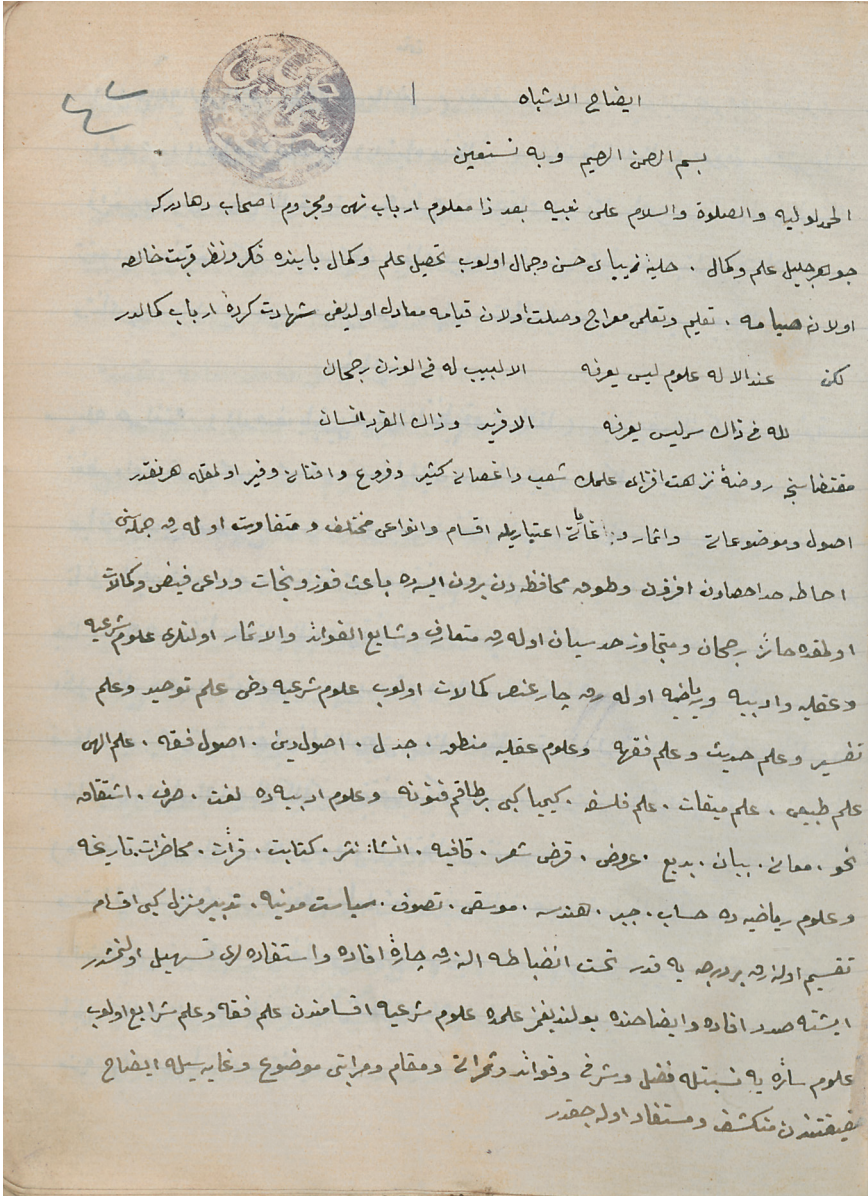 ايضاح الاشباه
١
بسم الرحمن الرحيم وبه نستعين
الحمد لوليه والصلوة والسلام على نبيه بعد ذا معلوم ارباب نهى ومجزوم اصحاب دهادركه
جوهر جليل علم وكمال . حليهٔ زيباى حسن وجمال اولوب تحصيل علم وكمال يابنده فكر ونظر قربت خالصه
اولان صيامه . تعليم وتعلمى معراج وصلت اولان قيامه معادل اولديغى شهادت كردهٔ ارباب كمالدر
لكن عند الاله علوم ليس يعرفه الا لبيب له فى الوزن رجحان
لله فى ذاك سر ليس يعرفه الا فريد وذاك الفرد انسان
مقتضاسنجه روضهٔ نزهت افزاى علمك شعب واغصانى كثير وفروع وافنانى وفير اولمقله هر نقدر
اصول وموضوعاتى واثمار وغاياتى اعتباريله اقسام وانواعى مختلف ومتفاوت اوله رق جمله سنى
احاطه حد احصادن افزون وطوق محافظه دن برون ايسه ده باعث فوز ونجات وداعى فيض وكمالات
اولمقده حائز رجحان ومتجاوز حد سيان اوله رق متعارف وشايع الفوائد والاثمار اولنلرى علوم شرعيه
وعقليه وادبيه ورياضيه اوله رق چار عنصر كمالات اولوب علوم شرعيه دخى علم توحيد وعلم
تفسير وعلم حديث وعلم فقهه وعلوم عقليه منطق . جدل . اصول دين . اصول فقه . علم الهى
علم طبيعى . علم ميقات . علم فلسفه . كيميا كبى برطاقم فنونه وعلوم ادبيه ده لغت . صرف . اشتقاق
نحو . معانى . بيان . بديع . عروض . قرض شعر . قافيه . انشاء نثر . كتابت . قرأت . محاضرات . تاريخه
وعلوم رياضيه ده حساب . جبر . هندسه . موسقى . تصوف . سياست مدنيه . تدبير منزل كبى اقسامه
تقسيم اولنه رق بر درجه يه قدر تحت انضباطه النه رق چارهٔ افاده واستفاده لرى تسهيل اولنمشدر
ايشته صدد افاده وايضاحنده بولنديغمز علمده علوم شرعيه اقسامندن علم فقه وعلم شرايع اولوب
علوم سائره يه نسبتله فضل وشرفى وفوائد وثمراتى ومقام ومراتبى موضوع وغايه سيله ايضاح
حقيقتندن منكشف ومستفاد اوله جقدر